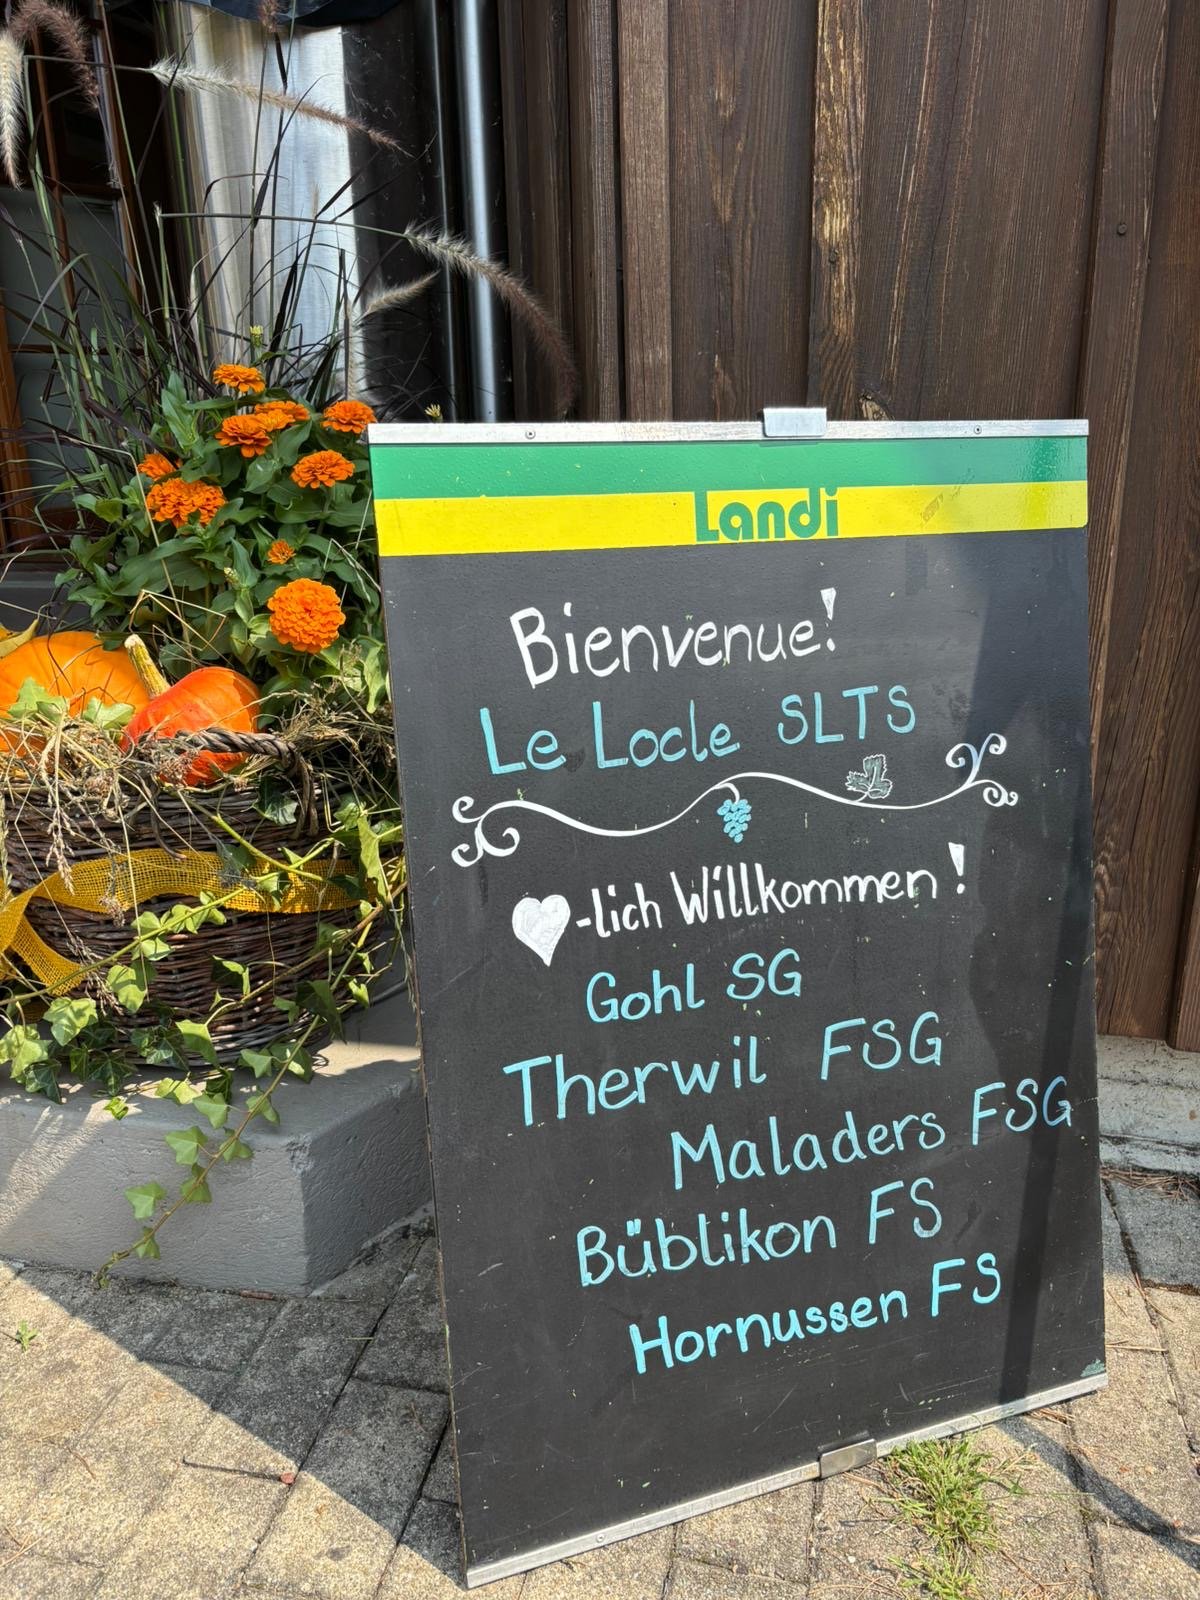 Landi
Bienvenue!
Le Locle SLTS
-lich Willkommen!
Gohl SG
Therwil FSG
Maladers FSG
Büblikon FS
Hornussen FS